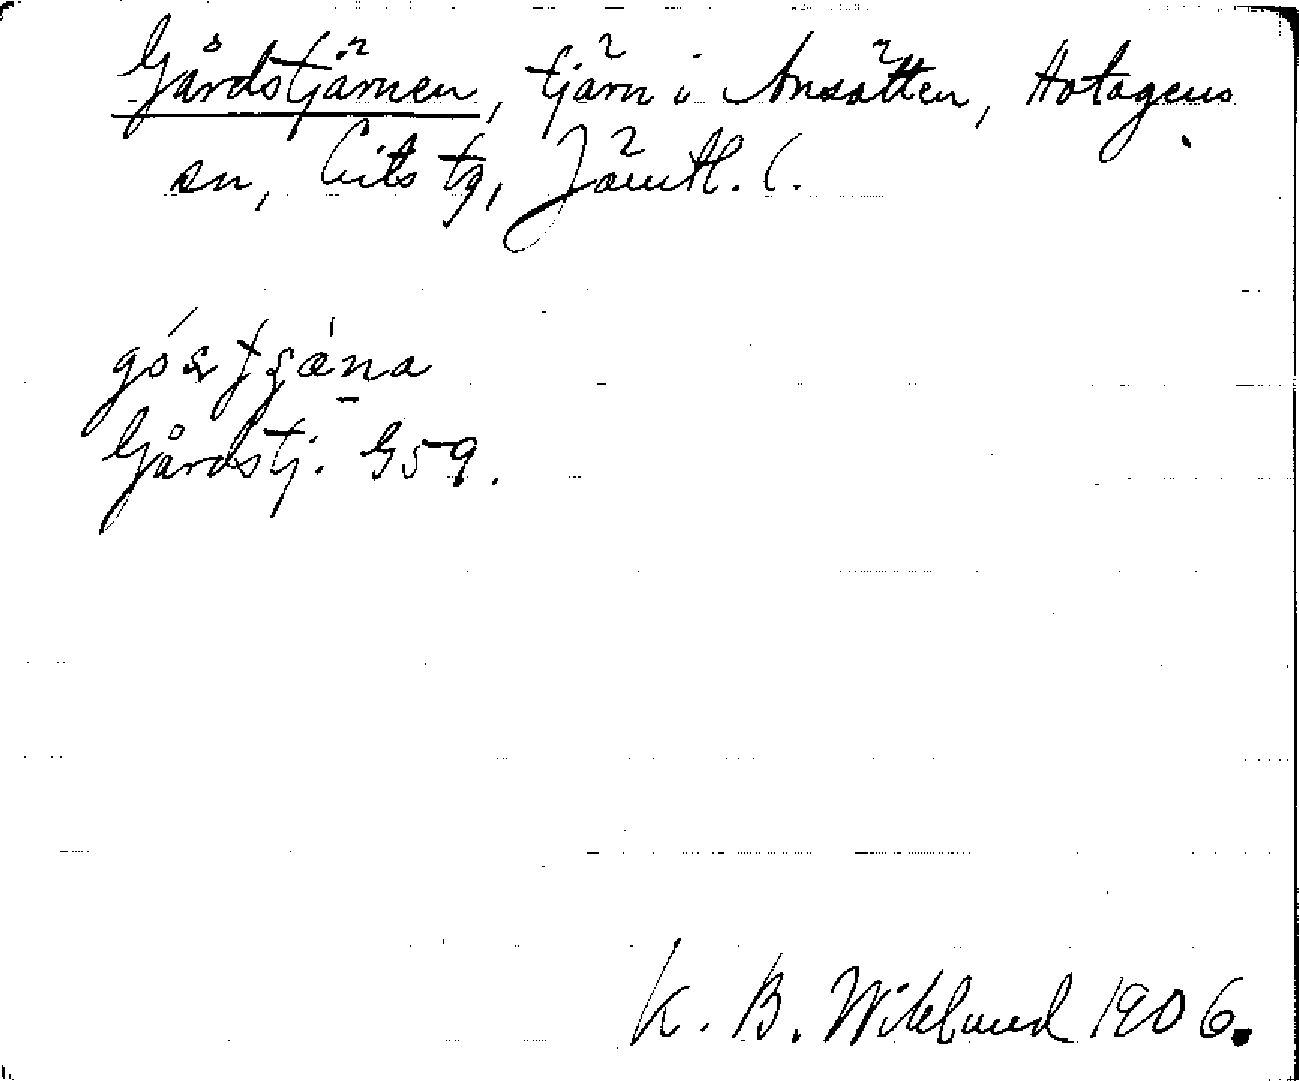 Gårdstjärnen, tjärn i Ansätten, Hotagens
sn, Lits tg, Jämtl. l.
Gårdstj. G59.
K. B. Wiklund 1906.